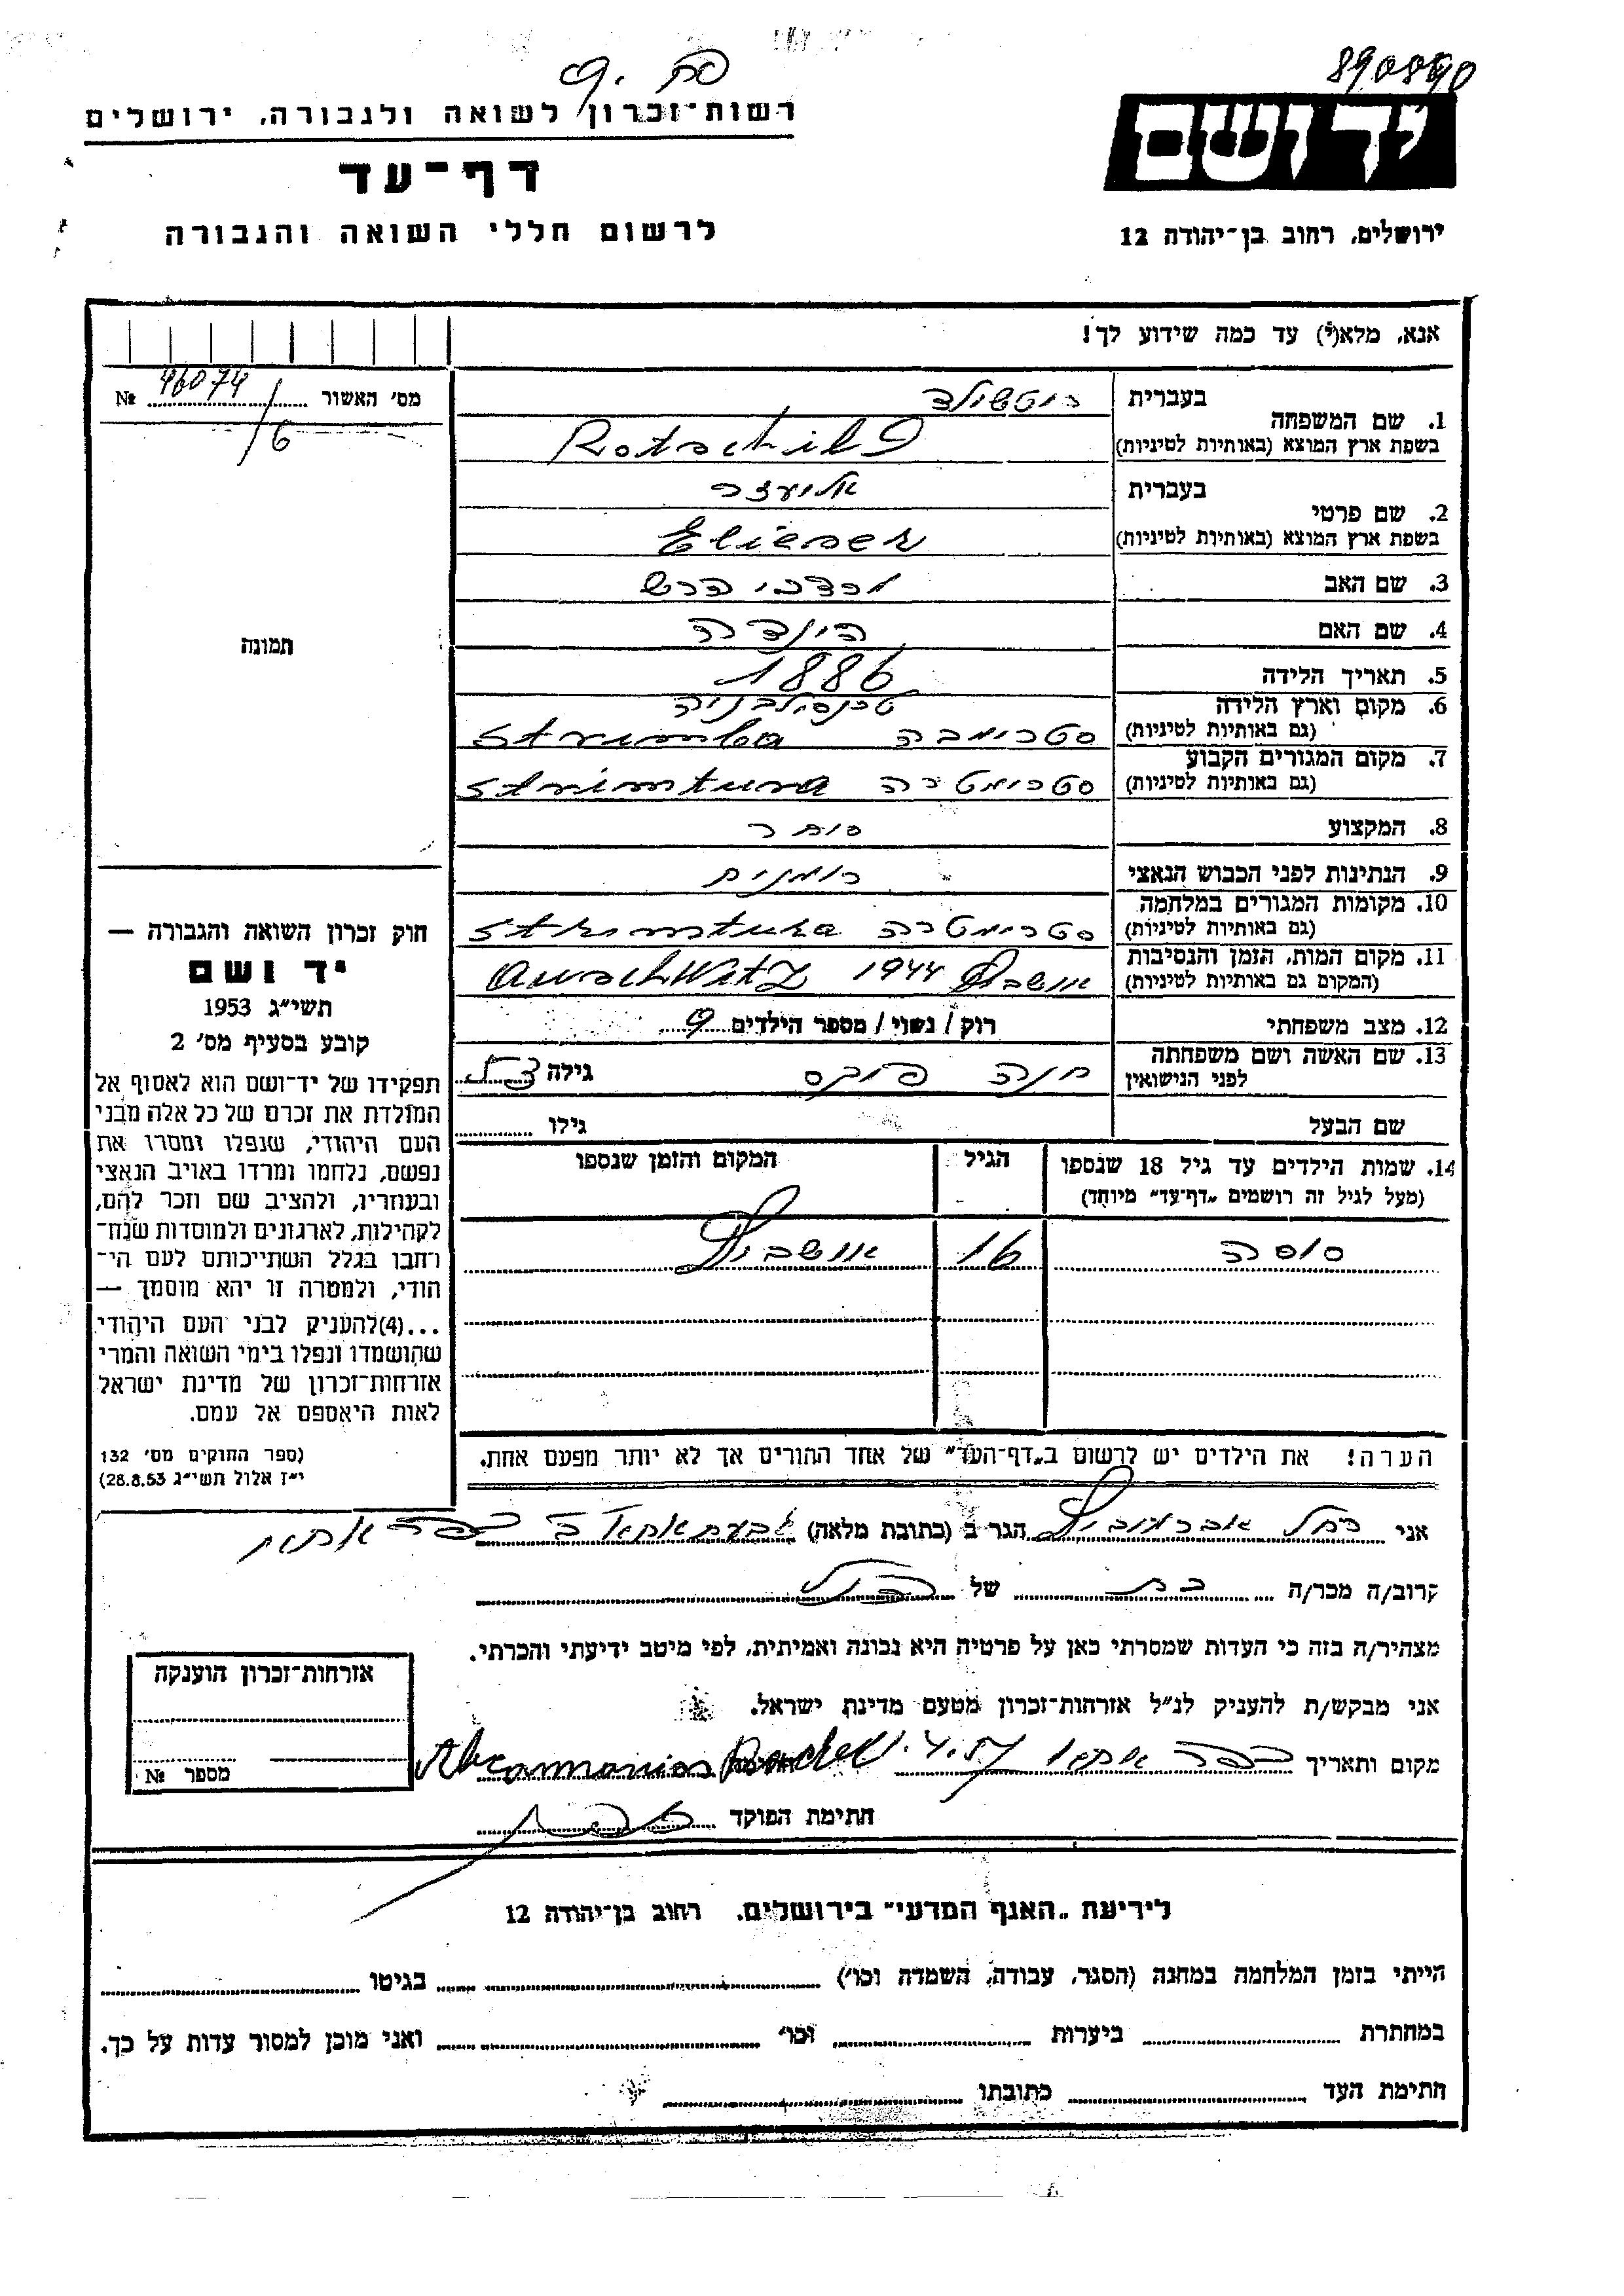 890890
יד ושם
ירושלים, רחוב בן־יהודה 12
רשות־זכרון לשואה ולגבורה, ירושלים
דף־עד
לרשום חללי השואה והגבורה
אנא, מלא(י) עד כמה שידוע לך!
מס׳ האשור 46074 №
/6
תמונה
1. שם המשפחה
בעברית רוטשילד
בשפת ארץ המוצא (באותיות לטיניות) Rotschild
2. שם פרטי
בעברית אליעזר
בשפת ארץ המוצא (באותיות לטיניות) Elieser
3. שם האב מרדכי הרש
4. שם האם הינדה
5. תאריך הלידה 1886
6. מקום וארץ הלידה טרנסילבניה
(גם באותיות לטיניות) סטרימבה Strimba
7. מקום המגורים הקבוע
(גם באותיות לטיניות) סטרימטרה Strimtura
8. המקצוע סוחר
9. הנתינות לפני הכבוש הנאצי רומנית
10. מקומות המגורים במלחמה
(גם באותיות לטיניות) סטרימטרה Strimtura
11. מקום המות, הזמן והנסיבות
(המקום גם באותיות לטיניות) אושביץ 1944 AuschWitz
12. מצב משפחתי רוק / נשוי / מספר הילדים 9
13. שם האשה ושם משפחתה
לפני הנישואין חנה פוקס גילה
שם הבעל גילו
14. שמות הילדים עד גיל 18 שנספו הגיל המקום והזמן שנספו
(מעל לגיל זה רושמים „דף־עד״ מיוחד)
סוסה 16 אושביץ
הערה! את הילדים יש לרשום ב„דף־העד״ של אחד ההורים אך לא יותר מפעם אחת.
חוק זכרון השואה והגבורה —
יד ושם
תשי״ג 1953
קובע בסעיף מס׳ 2
תפקידו של יד־ושם הוא לאסוף אל
המולדת את זכרם של כל אלה מבני
העם היהודי, שנפלו ומסרו את
נפשם, נלחמו ומרדו באויב הנאצי
ובעוזריו, ולהציב שם וזכר להם,
לקהילות, לארגונים ולמוסדות שנח־
רבו בגלל השתייכותם לעם הי־
הודי, ולמטרה זו יהא מוסמך —
...(4)להעניק לבני העם היהודי
שהושמדו ונפלו בימי השואה והמרי
אזרחות־זכרון של מדינת ישראל
לאות היאספם אל עמם.
(ספר החוקים מס׳ 132
י״ז אלול תשי״ג 28.8.53)
אני רחל אברמוביץ הגר ב (כתובת מלאה) גבעת אתא
קרוב/ה מכר/ה בת של הנ״ל
מצהיר/ה בזה כי העדות שמסרתי כאן על פרטיה היא נכונה ואמיתית, לפי מיטב ידיעתי והכרתי.
אני מבקש/ת להעניק לנ״ל אזרחות־זכרון מטעם מדינת ישראל.
מקום ותאריך כפר אתא 1.4.57 Abramovics Rachel
חתימת הפוקד
אזרחות־זכרון הוענקה
מספר №
לידיעת „האגף המדעי״ בירושלים, רחוב בן־יהודה 12
הייתי בזמן המלחמה במחנה (הסגר, עבודה, השמדה וכו׳) בגיטו
במחתרת ביערות וכו׳ ואני מוכן למסור עדות על כך.
חתימת העד כתובתו